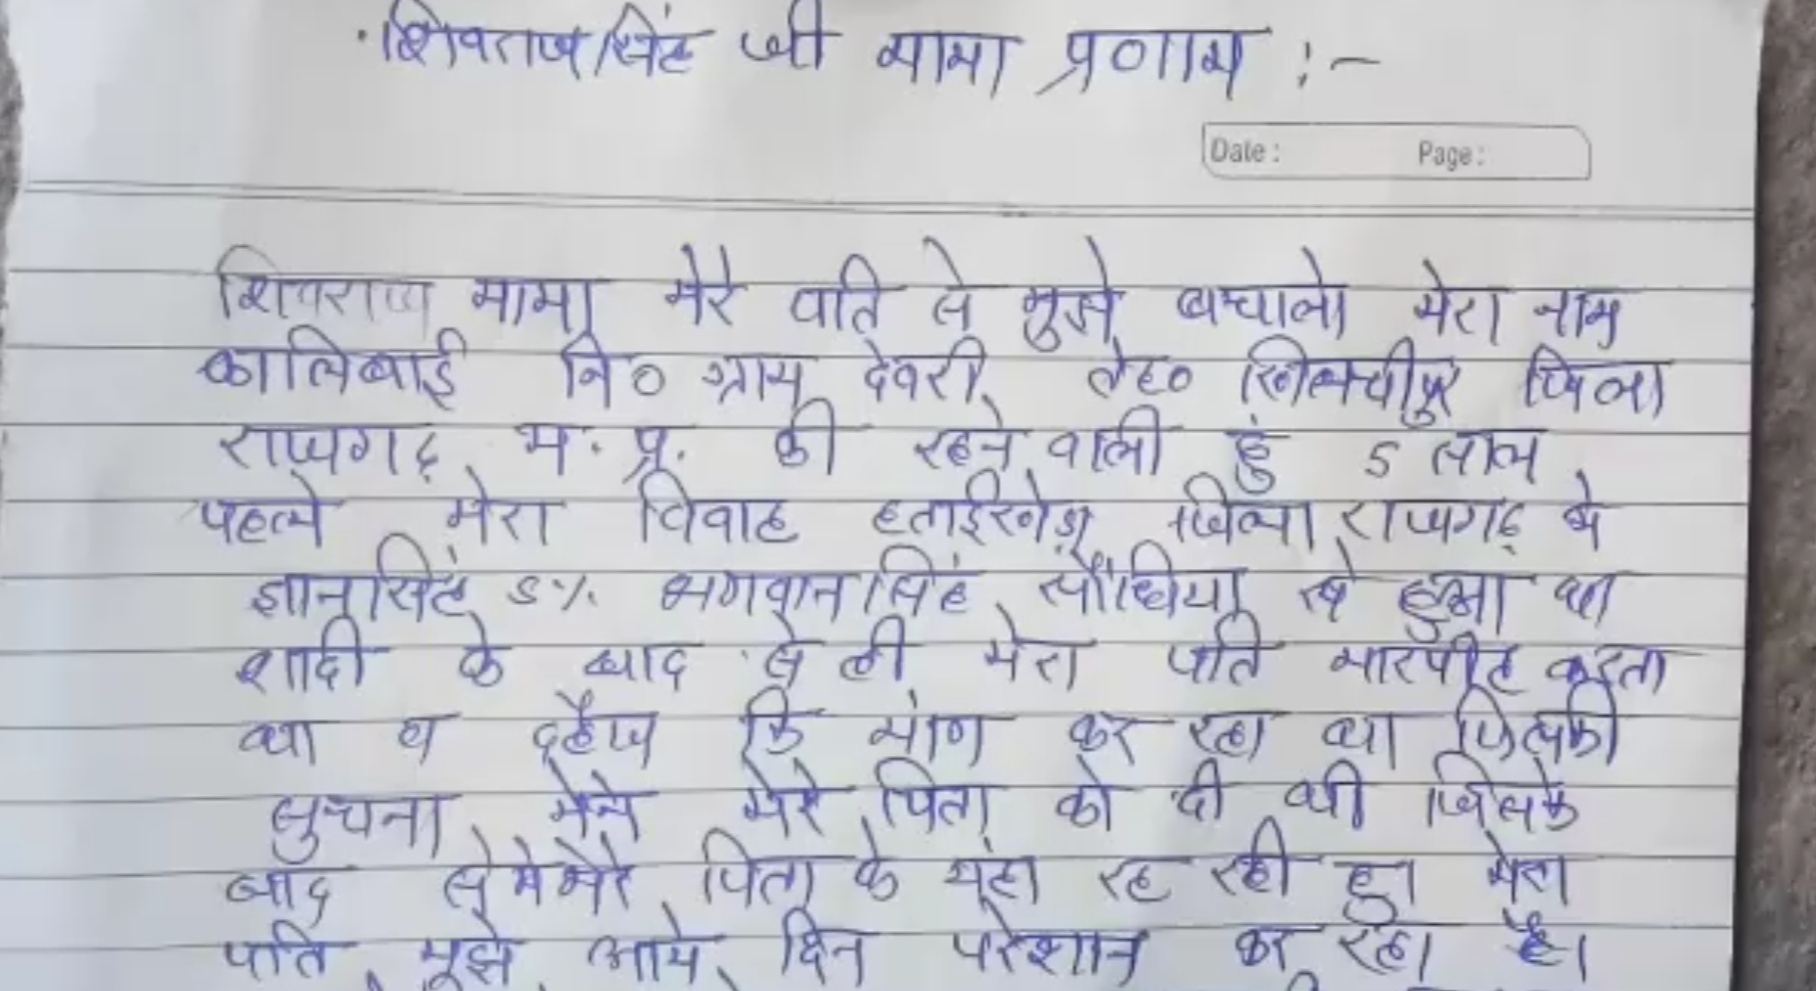 शिवराज सिंह जी मामा प्रणाम :-
Date : Page :
शिवराज मामा मेरे पति से मुझे बचालो मेरा नाम
कालिबाई नि० ग्राम देवरी तेह० खिलचीपुर जिला
राजगढ़ म. प्र. की रहने वाली हुं 5 साल
पहले मेरा विवाह हताईखेड़ा जिला राजगढ़ मे
ज्ञानसिहं S/o भगवानसिहं सौंधिया से हुआ था
शादी के बाद से ही मेरा पति मारपीट करता
था व दहैज कि मांग कर रहा था जिसकी
सुचना मेने मेरे पिता को दी थी जिसके
बाद से मे मेरे पिता के यहां रह रही हु। मेरा
पति मुझे आये दिन परेशान कर रहा है।